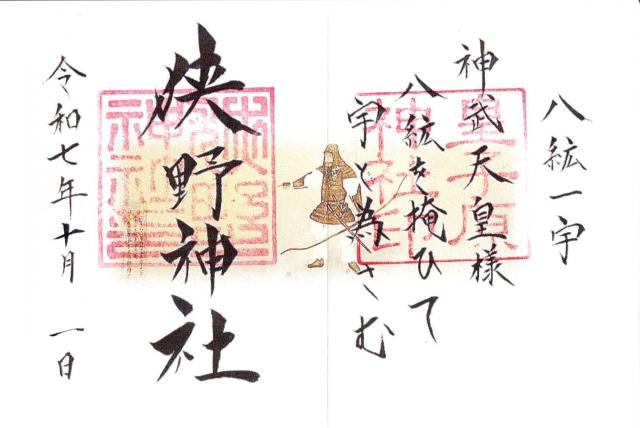 八紘一宇
神武天皇様
八紘を掩ひて
宇と為さむ
皇子原
神社印
狭野神社
令和七年十月 一日